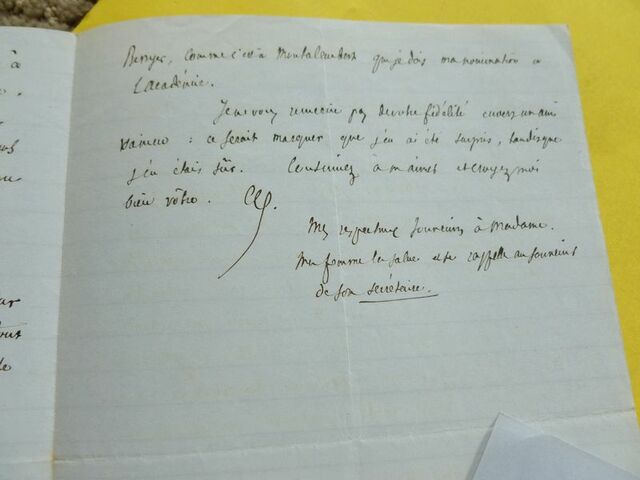 à
Berryer, comme c'est à Montalembert que je dois ma nomination à
l'académie.
Je ne vous remercie pas de votre fidélité envers un ami
vaincu : ce serait marquer que j'en ai été surpris, tandis que
j'en étais sûr. Continuez à m'aimer et croyez moi
bien vôtre.
Mes respectueux souvenirs à Madame.
Ma femme la salue et se rappelle au souvenir
de son secrétaire.